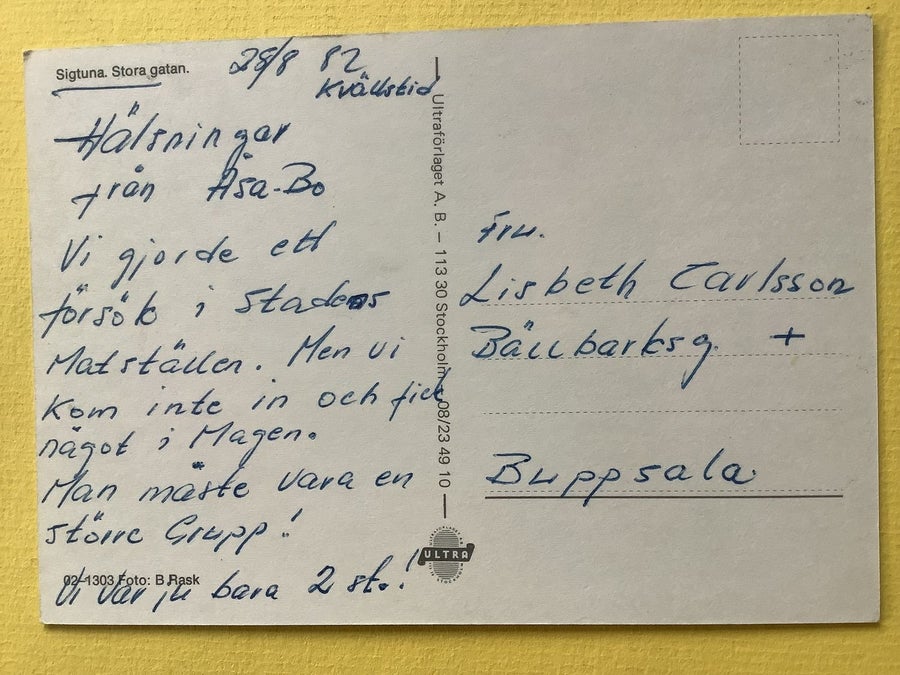 Sigtuna. Stora gatan.
28/8 82
Kvällstid
Hälsningar
från Åsa-Bo
Vi gjorde ett
försök i Stadens
Matställen. Men vi
kom inte in och fick
något i Magen.
Man måste vara en
större Grupp!
Vi var ju bara 2 st.!
02-1303 Foto: B Rask
Ultraförlaget A. B. – 113 30 Stockholm 08/23 49 10
ULTRA
Fru.
Lisbeth Carlsson
+
Buppsala